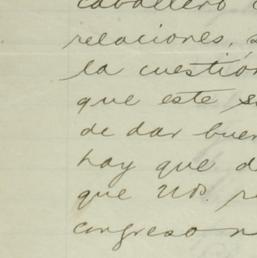 caballero
relaciones,
la cuestión
que este
de dar buen
hay que d
que Uds.
congreso n